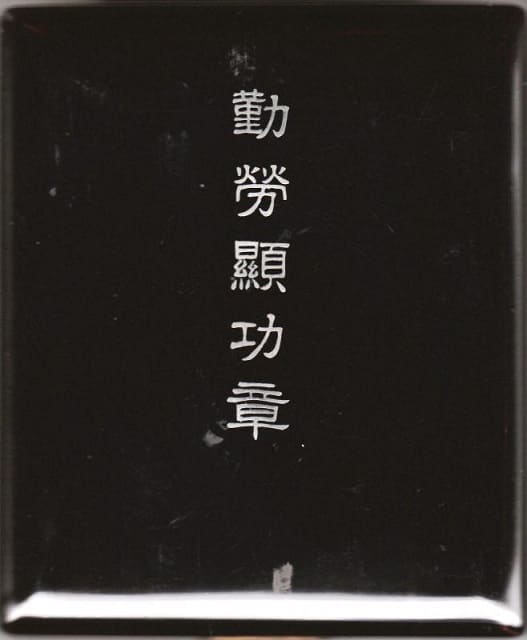 勤勞顯功章